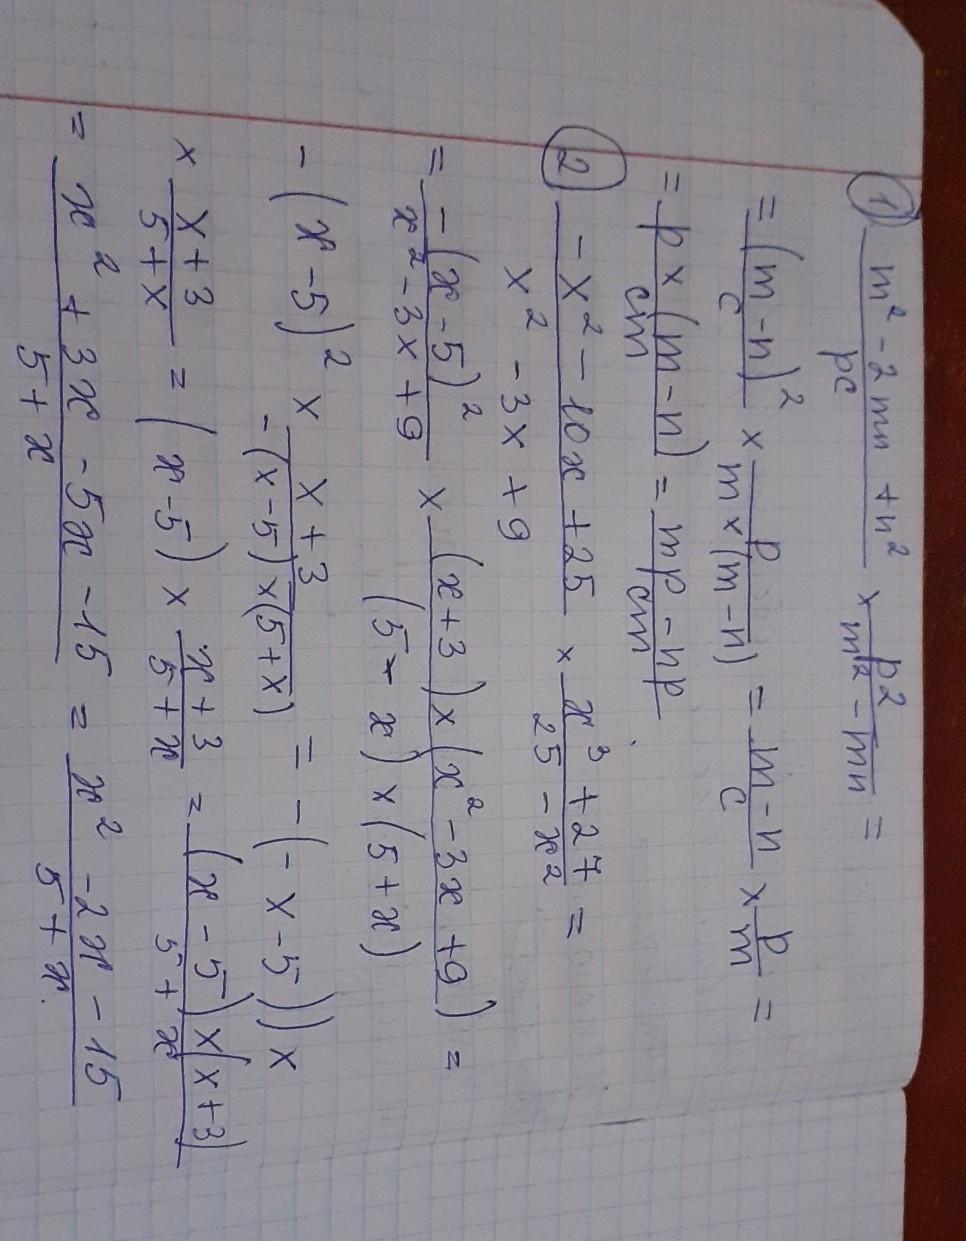 1) (m² - 2mn + n²)/(pc) × p²/(m² - mn) =
= (m - n)²/c × p/(m × (m - n)) = (m - n)/c × p/m =
= (p × (m - n))/(cm) = (mp - np)/(cm).
2) (- x² - 10x + 25)/(x² - 3x + 9) × (x³ + 27)/(25 - x²) =
= (-(x - 5)²)/(x² - 3x + 9) × ((x + 3) × (x² - 3x + 9))/((5 - x) × (5 + x)) =
- (x - 5)² × (x + 3)/(-(x - 5) × (5 + x)) = - (- x - 5)) ×
× (x + 3)/(5 + x) = (x - 5) × (x + 3)/(5 + x) = ((x - 5) × (x + 3))/(5 + x)
= (x² + 3x - 5x - 15)/(5 + x) = (x² - 2x - 15)/(5 + x).